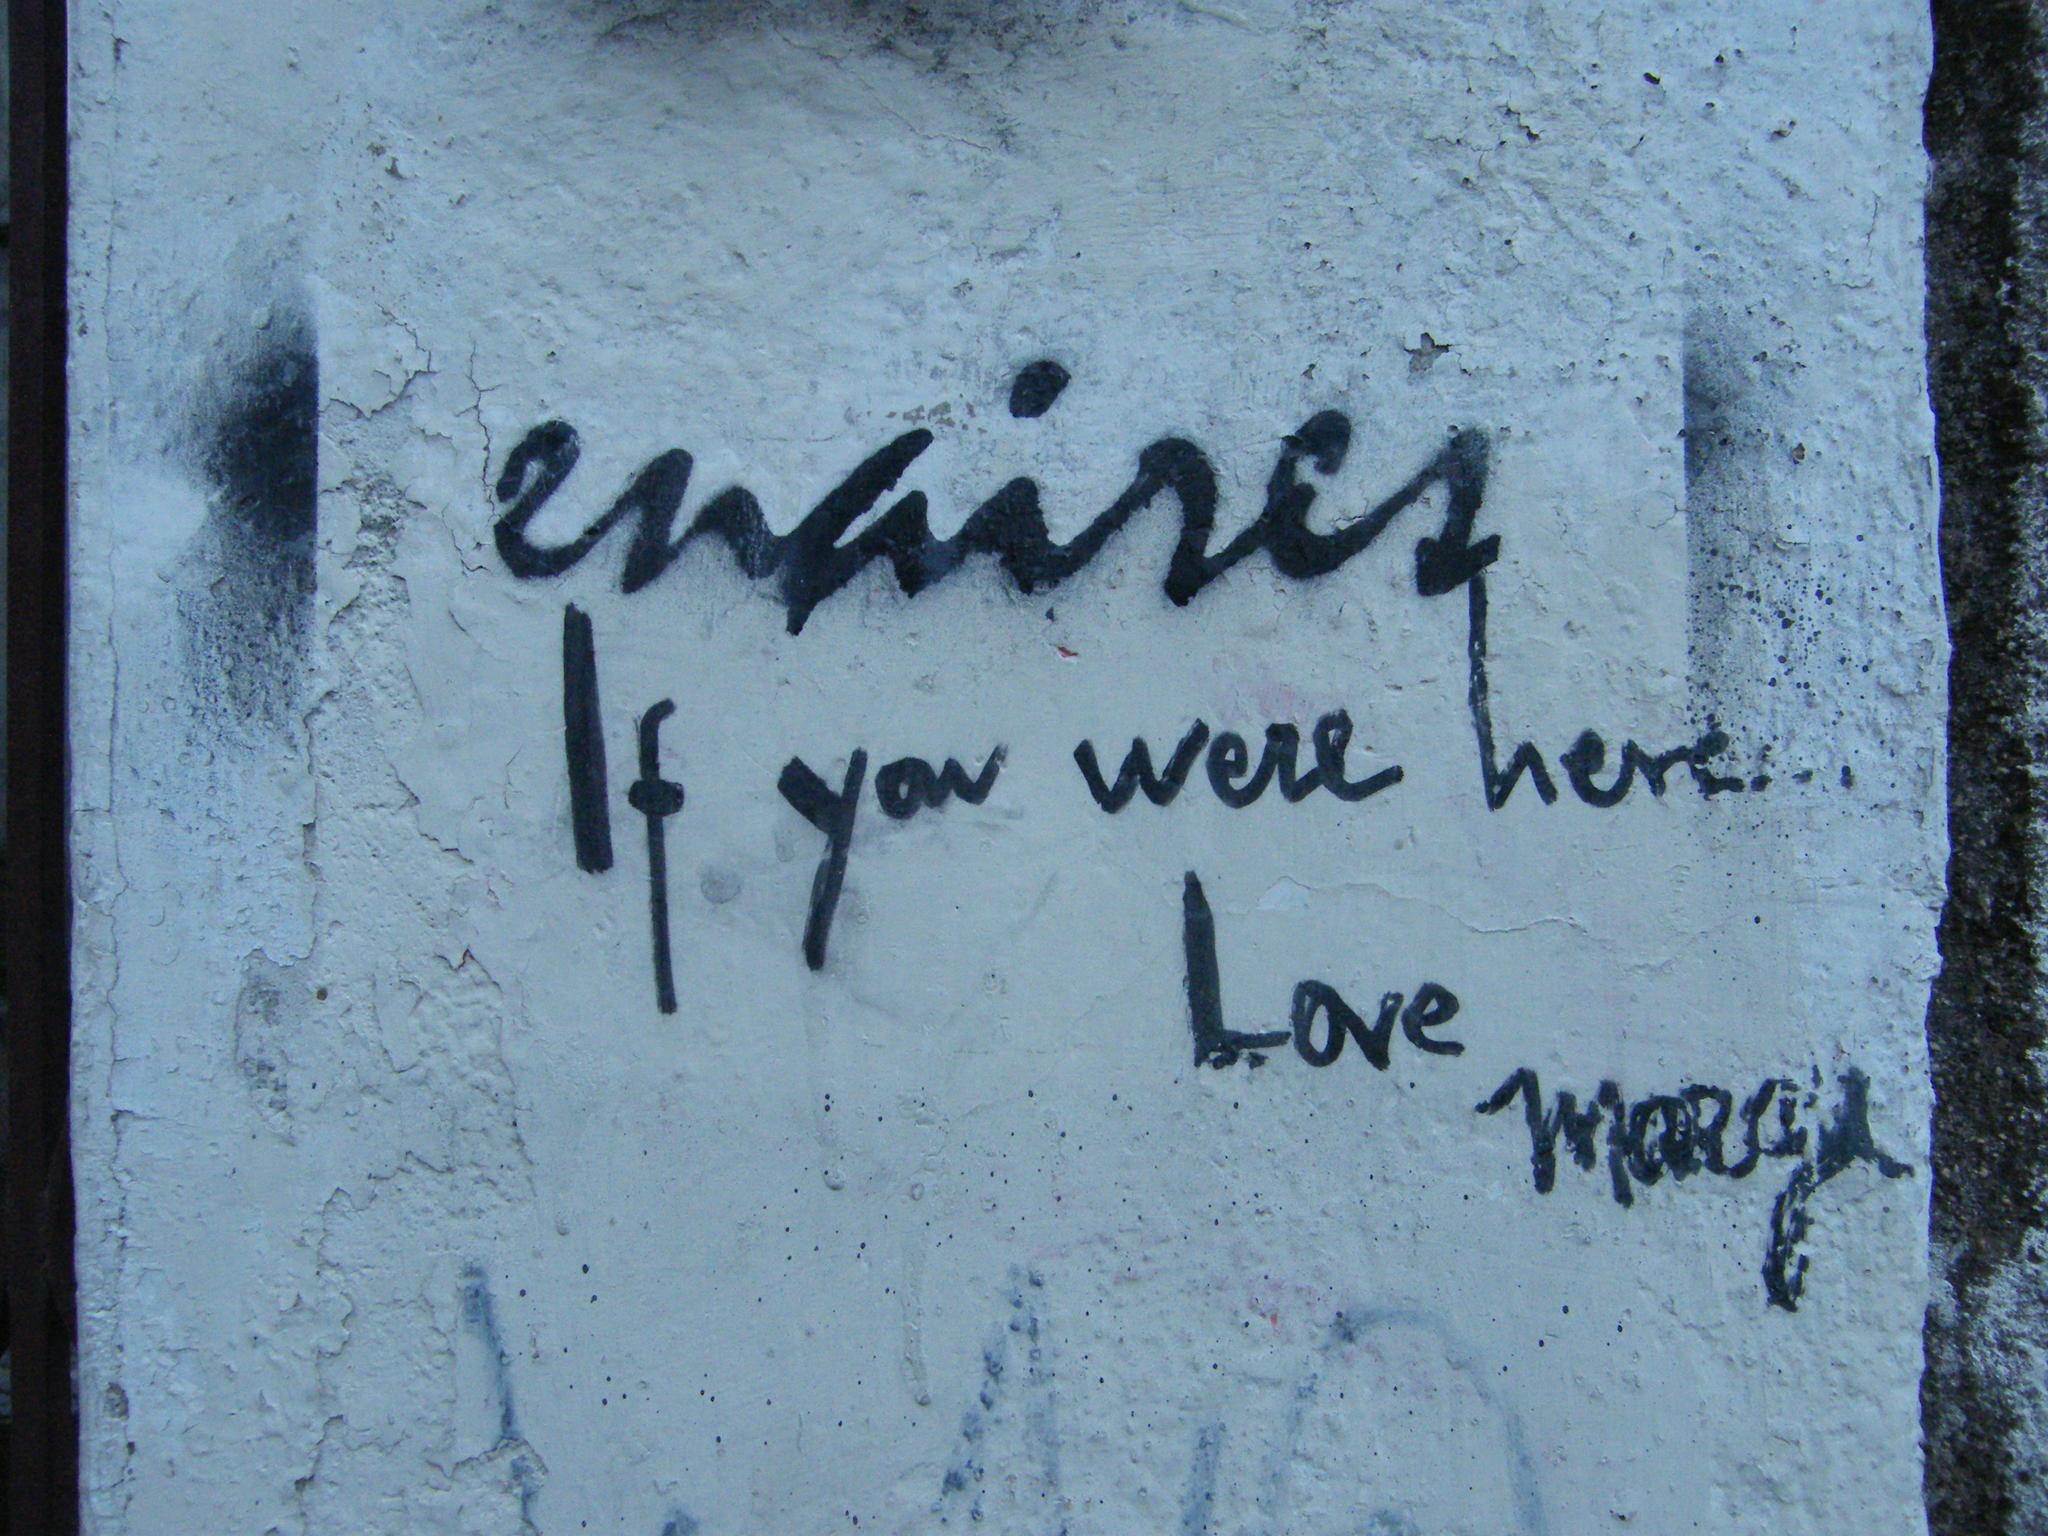 enaires
If you were here...
Love